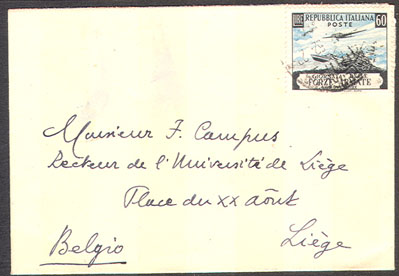 REPUBBLICA ITALIANA
60
POSTE
GIORNATA DELLE
FORZE ARMATE
Monsieur F. Campus
Recteur de l'Université de Liège
Place du XX Août
Liège
Belgio